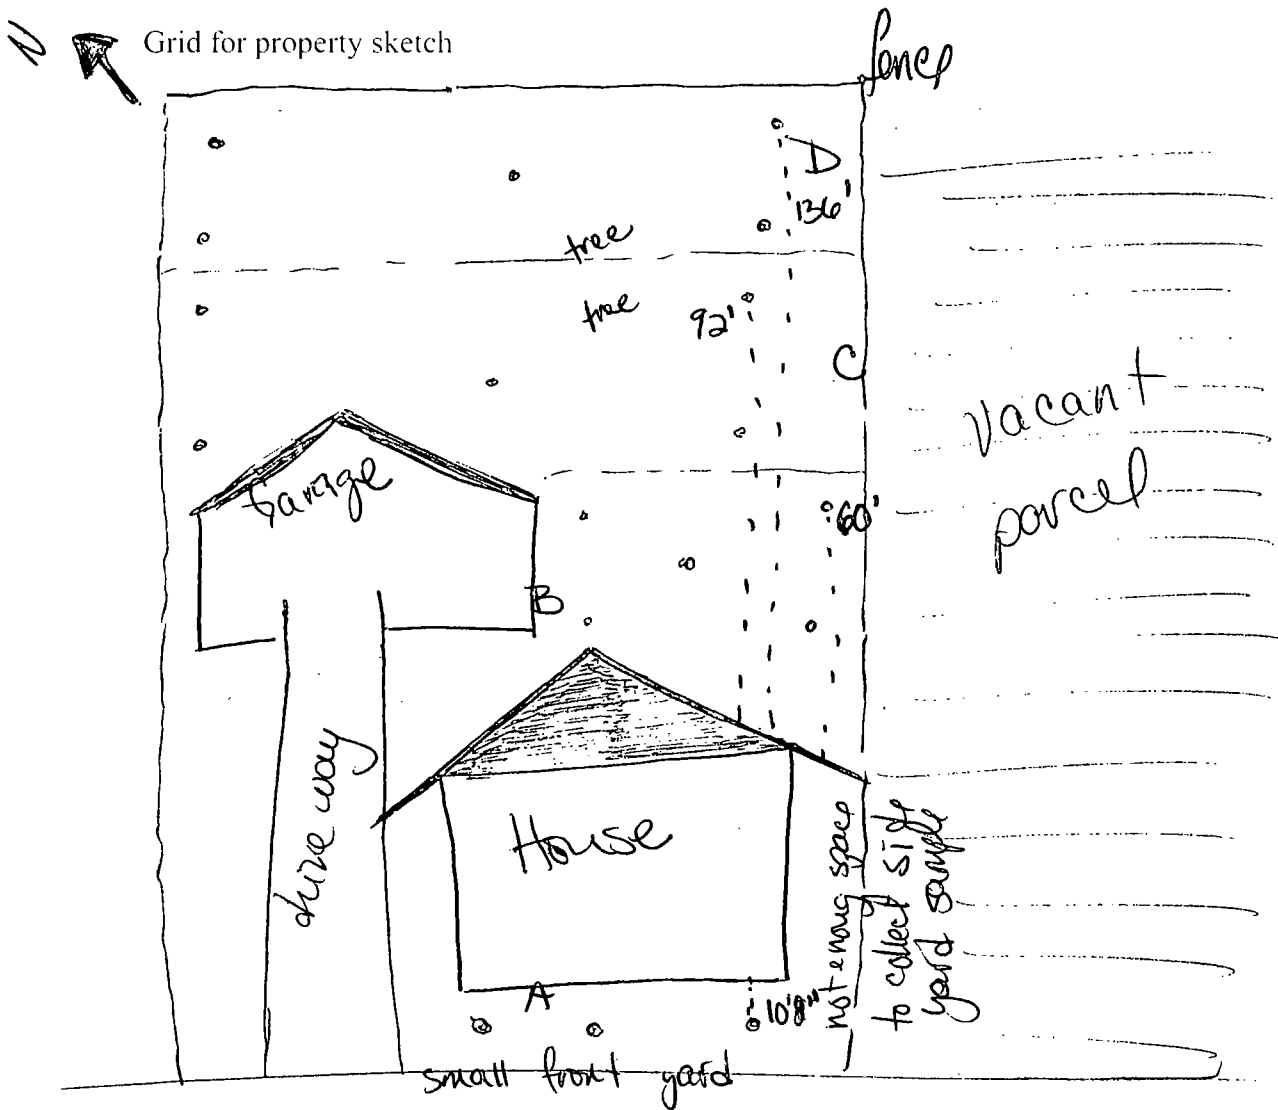 N
Grid for property sketch
fence
D
136'
tree
tree
92'
C
vacant
parcel
Garage
60'
B
drive way
House
not enoug space
to collect side
yard sample
A
10'8"
small front yard